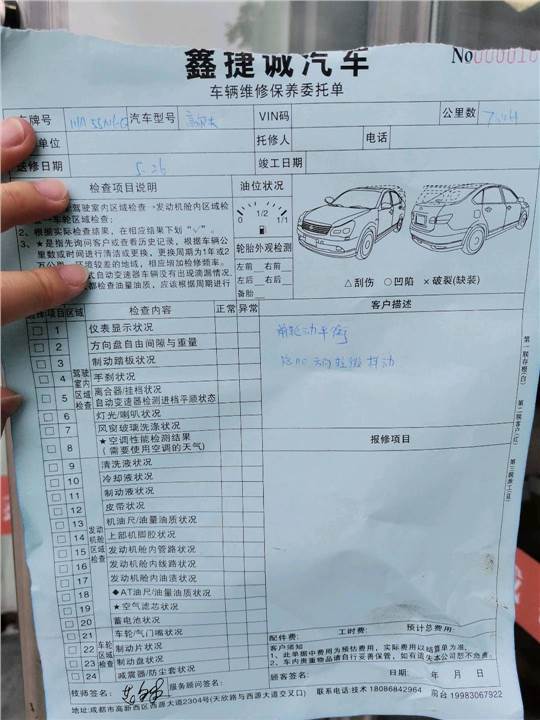 鑫捷诚汽车
No 0000010
车辆维修保养委托单
车牌号 汽车型号 VIN码 公里数
单位 托修人 电话
送修日期 5.26 竣工日期
检查项目说明 油位状况
驾驶室内区域检查→发动机舱内区域检
车轮区域检查;
2、根据实际检查结果, 在相应结果下划“√”。
3、★是指先询问客户或查看历史记录, 根据车辆公
里数或时间进行清洁或更换, 更换周期为1年或2
万公里, 环境较差的地域, 相应增加检修频率。
式自动变速器车辆没有出现滴漏情况,
都检查油量油质, 应该根据周期进行
0 1/2 1/1
轮胎外观检测
左前 右前
左后 右后
备胎
△刮伤 ○凹陷 ×破裂(缺装)
选择 项目 区域 检查内容 正常 异常 客户描述
驾驶室内区域检查
1 仪表显示状况
2 方向盘自由间隙与重量
3 制动踏板状况
4 手刹状况
5 离合器/挂档状况
自动变速器检测进档平顺状态
6 灯光/喇叭状况
7 风窗玻璃洗涤状况
8 ★空调性能检测结果
(需要使用空调的天气)
发动机舱区域检查
9 清洗液状况
10 冷却液状况
11 制动液状况
12 皮带状况
13 机油尺/油量油质状况
14 上部机脚胶状况
15 发动机舱内管路状况
16 发动机舱内线路状况
17 发动机舱内油渍状况
18 ◆AT油尺/油量油质状况
19 ★空气滤芯状况
20 蓄电池状况
车轮区域检查
21 车轮/气门嘴状况
22 制动片状况
23 制动盘状况
24 减震器/防尘套状况
前轮动平衡
方向轻微抖动
报修项目
第一联存根(白)
第二联客户(红)
第三联班工(蓝)
配件费: 工时费: 预计总费用:
客户须知
1、此单据中费用为预估费用, 实际费用以结算单为准。
2、车内贵重物品请自行妥善保管, 如有遗失本公司恕不负责。
技师签名: 服务顾问签名: 顾客签名: 日期: 年 月 日
地址:成都市高新西区西源大道2304号(天欣路与西源大道交叉口) 联系电话:技术 18086842964 前台 19983067922